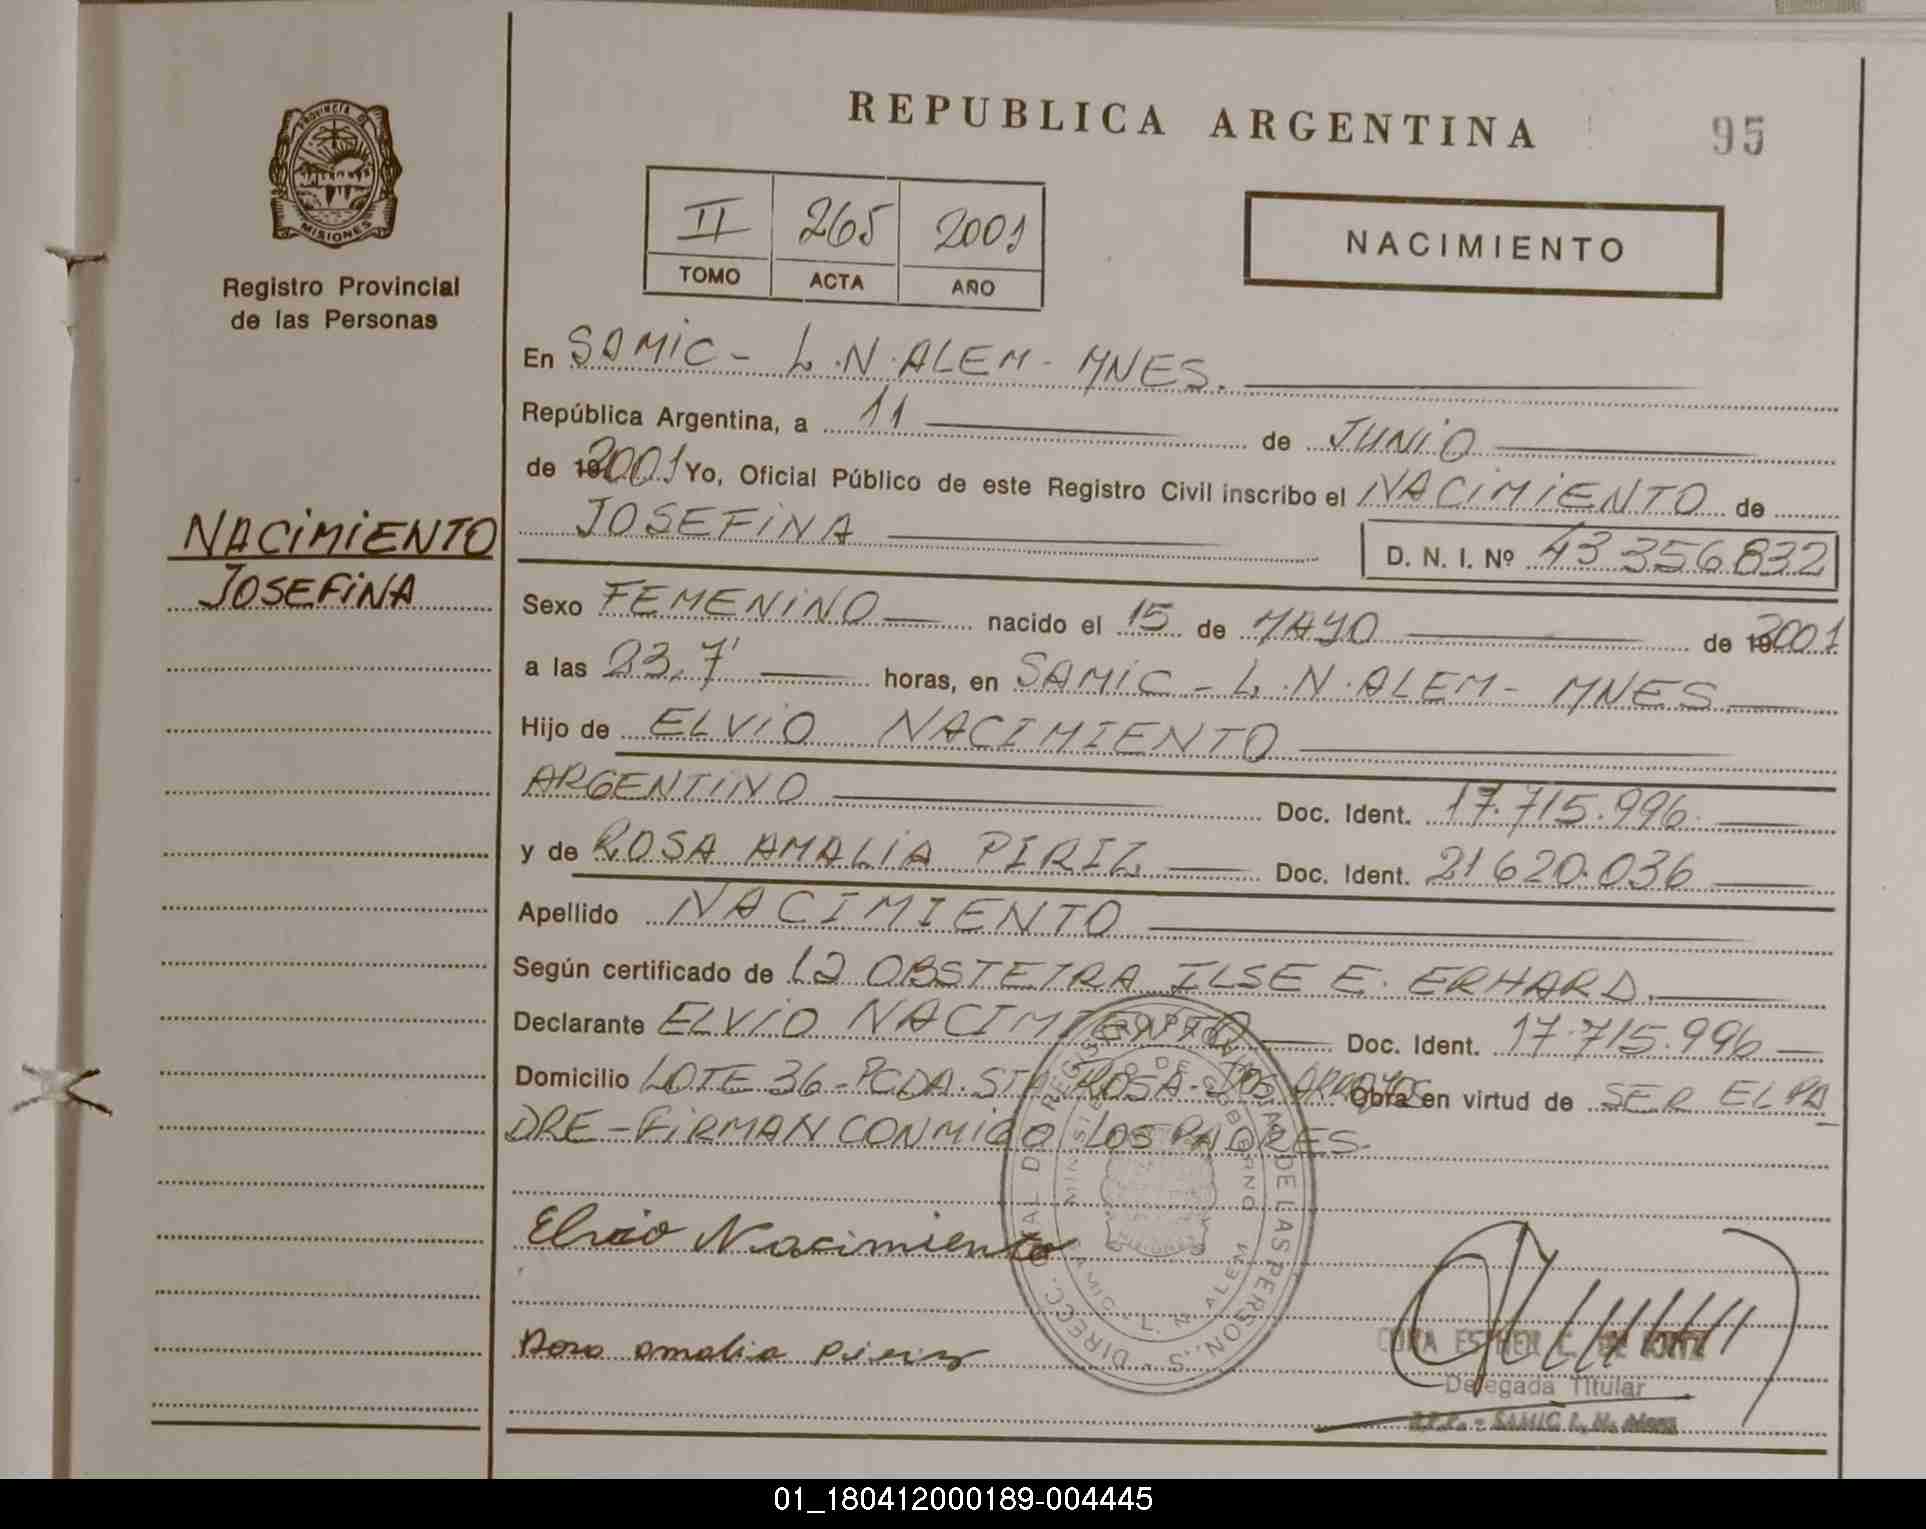 REPUBLICA ARGENTINA
95
PROVINCIA DE
MISIONES
Registro Provincial
de las Personas
II 265 2001
TOMO ACTA AÑO
NACIMIENTO
NACIMIENTO
JOSEFINA
En SAMIC - L.N. ALEM - MNES.
República Argentina, a 11 de JUNIO
de 192001 Yo, Oficial Público de este Registro Civil inscribo el NACIMIENTO de
JOSEFINA D. N. I. Nº 43 356 832
Sexo FEMENINO nacido el 15 de MAYO de 192001
a las 23,7' horas, en SAMIC - L.N. ALEM - MNES
Hijo de ELVIO NACIMIENTO
ARGENTINO Doc. Ident. 17.715.996
y de ROSA AMALIA PIRIZ Doc. Ident. 21 620.036
Apellido NACIMIENTO
Según certificado de La OBSTETRA ILSE E. ERHARD
Declarante ELVIO NACIMIENTO Doc. Ident. 17.715.996
Domicilio LOTE 36 - PCDA. STA. ROSA - DOS ARROYOS Obra en virtud de SER EL PA
DRE - FIRMAN CONMIGO LOS PADRES.
Elvio Nacimiento
Rosa amalia piriz
DIRECC. PROVINCIAL DE LAS PERSONAS
MINISTERIO DE GOBIERNO
MISIONES
SAMIC - L. N. ALEM
ESTHER
Delegada Titular
SAMIC L. N. Alem
01_180412000189-004445